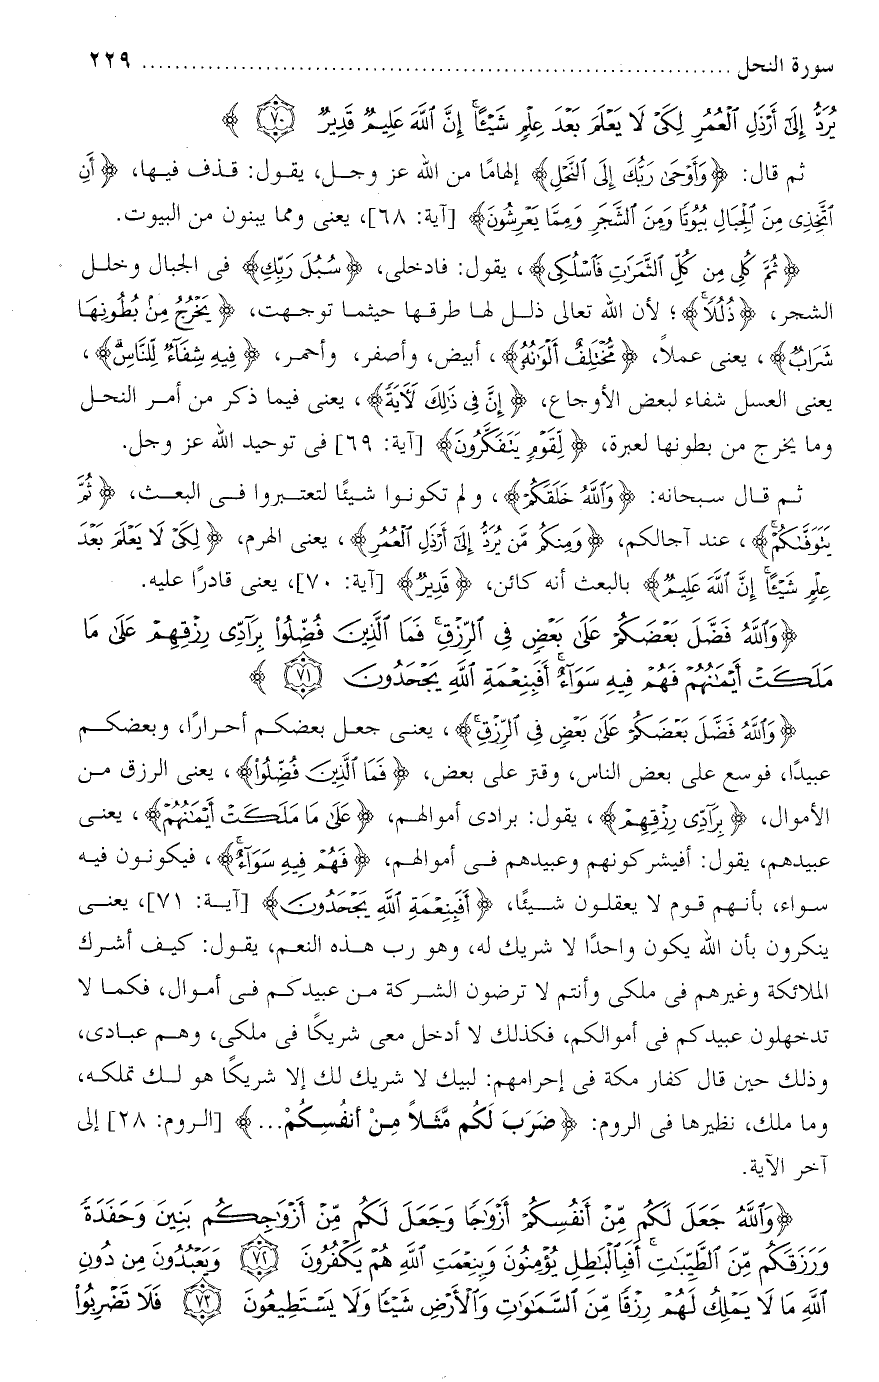 سورة النحل ................................................................ ٢٢٩
يُرَدُّ إِلَىٰٓ أَرْذَلِ ٱلْعُمُرِ لِكَىْ لَا يَعْلَمَ بَعْدَ عِلْمٍ شَيْـًٔا ۚ إِنَّ ٱللَّهَ عَلِيمٌ قَدِيرٌ ﴿٧٠﴾ ﴾
ثم قال: ﴿وَأَوْحَىٰ رَبُّكَ إِلَى ٱلنَّحْلِ﴾ إلهامًا من الله عز وجل، يقول: قذف فيها، ﴿أَنِ
ٱتَّخِذِى مِنَ ٱلْجِبَالِ بُيُوتًا وَمِنَ ٱلشَّجَرِ وَمِمَّا يَعْرِشُونَ﴾ [آية: ٦٨]، يعنى ومما يبنون من البيوت.
﴿ثُمَّ كُلِى مِن كُلِّ ٱلثَّمَرَٰتِ فَٱسْلُكِى﴾، يقول: فادخلى، ﴿سُبُلَ رَبِّكِ﴾ فى الجبال وخلل
الشجر، ﴿ذُلُلًا ۚ﴾؛ لأن الله تعالى ذلل لها طرقها حيثما توجهت، ﴿يَخْرُجُ مِنۢ بُطُونِهَا
شَرَابٌ﴾، يعنى عملاً، ﴿مُّخْتَلِفٌ أَلْوَٰنُهُۥ﴾، أبيض، وأصفر، وأحمر، ﴿فِيهِ شِفَآءٌ لِّلنَّاسِ ۗ﴾،
يعنى العسل شفاء لبعض الأوجاع، ﴿إِنَّ فِى ذَٰلِكَ لَـَٔايَةً﴾، يعنى فيما ذكر من أمر النحل
وما يخرج من بطونها لعبرة، ﴿لِّقَوْمٍ يَتَفَكَّرُونَ﴾ [آية: ٦٩] فى توحيد الله عز وجل.
ثم قال سبحانه: ﴿وَٱللَّهُ خَلَقَكُمْ﴾، ولم تكونوا شيئًا لتعتبروا فى البعث، ﴿ثُمَّ
يَتَوَفَّىٰكُمْ ۚ﴾، عند آجالكم، ﴿وَمِنكُم مَّن يُرَدُّ إِلَىٰٓ أَرْذَلِ ٱلْعُمُرِ﴾، يعنى الهرم، ﴿لِكَىْ لَا يَعْلَمَ بَعْدَ
عِلْمٍ شَيْـًٔا ۚ إِنَّ ٱللَّهَ عَلِيمٌ﴾ بالبعث أنه كائن، ﴿قَدِيرٌ﴾ [آية: ٧٠]، يعنى قادرًا عليه.
﴿وَٱللَّهُ فَضَّلَ بَعْضَكُمْ عَلَىٰ بَعْضٍ فِى ٱلرِّزْقِ ۚ فَمَا ٱلَّذِينَ فُضِّلُوا۟ بِرَآدِّى رِزْقِهِمْ عَلَىٰ مَا
مَلَكَتْ أَيْمَٰنُهُمْ فَهُمْ فِيهِ سَوَآءٌ ۚ أَفَبِنِعْمَةِ ٱللَّهِ يَجْحَدُونَ ﴿٧١﴾ ﴾
﴿وَٱللَّهُ فَضَّلَ بَعْضَكُمْ عَلَىٰ بَعْضٍ فِى ٱلرِّزْقِ ۚ﴾، يعنى جعل بعضكم أحرارًا، وبعضكم
عبيدًا، فوسع على بعض الناس، وقتر على بعض، ﴿فَمَا ٱلَّذِينَ فُضِّلُوا۟﴾، يعنى الرزق من
الأموال، ﴿بِرَآدِّى رِزْقِهِمْ﴾، يقول: برادى أموالهم، ﴿عَلَىٰ مَا مَلَكَتْ أَيْمَٰنُهُمْ﴾، يعنى
عبيدهم، يقول: أفيشركونهم وعبيدهم فى أموالهم، ﴿فَهُمْ فِيهِ سَوَآءٌ ۚ﴾، فيكونون فيه
سواء، بأنهم قوم لا يعقلون شيئًا، ﴿أَفَبِنِعْمَةِ ٱللَّهِ يَجْحَدُونَ﴾ [آية: ٧١]، يعنى
ينكرون بأن الله يكون واحدًا لا شريك له، وهو رب هذه النعم، يقول: كيف أشرك
الملائكة وغيرهم فى ملكى وأنتم لا ترضون الشركة من عبيدكم فى أموال، فكما لا
تدخهلون عبيدكم فى أموالكم، فكذلك لا أدخل معى شريكًا فى ملكى، وهم عبادى،
وذلك حين قال كفار مكة فى إحرامهم: لبيك لا شريك لك إلا شريكًا هو لك تملكه،
وما ملك، نظيرها فى الروم: ﴿ضَرَبَ لَكُم مَّثَلاً مِنْ أنفُسِكُمْ...﴾ [الروم: ٢٨] إلى
آخر الآية.
﴿وَٱللَّهُ جَعَلَ لَكُم مِّنْ أَنفُسِكُمْ أَزْوَٰجًا وَجَعَلَ لَكُم مِّنْ أَزْوَٰجِكُم بَنِينَ وَحَفَدَةً
وَرَزَقَكُم مِّنَ ٱلطَّيِّبَٰتِ ۚ أَفَبِٱلْبَٰطِلِ يُؤْمِنُونَ وَبِنِعْمَتِ ٱللَّهِ هُمْ يَكْفُرُونَ ﴿٧٢﴾ وَيَعْبُدُونَ مِن دُونِ
ٱللَّهِ مَا لَا يَمْلِكُ لَهُمْ رِزْقًا مِّنَ ٱلسَّمَٰوَٰتِ وَٱلْأَرْضِ شَيْـًٔا وَلَا يَسْتَطِيعُونَ ﴿٧٣﴾ فَلَا تَضْرِبُوا۟